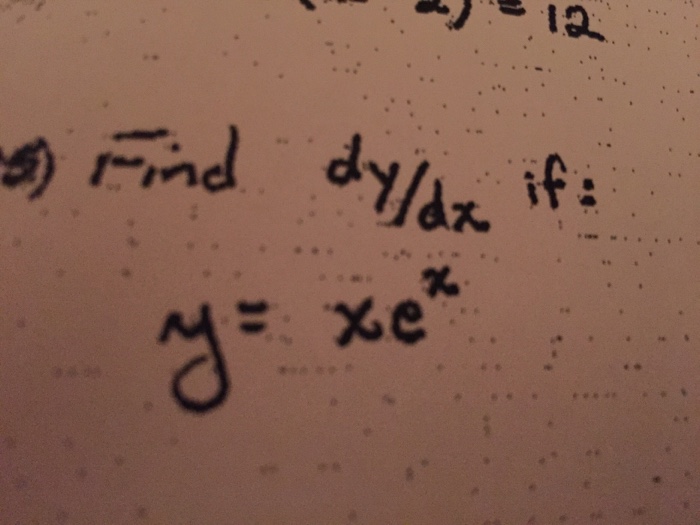 2) = 12
5) Find dy/dx if:
y = xeˣ